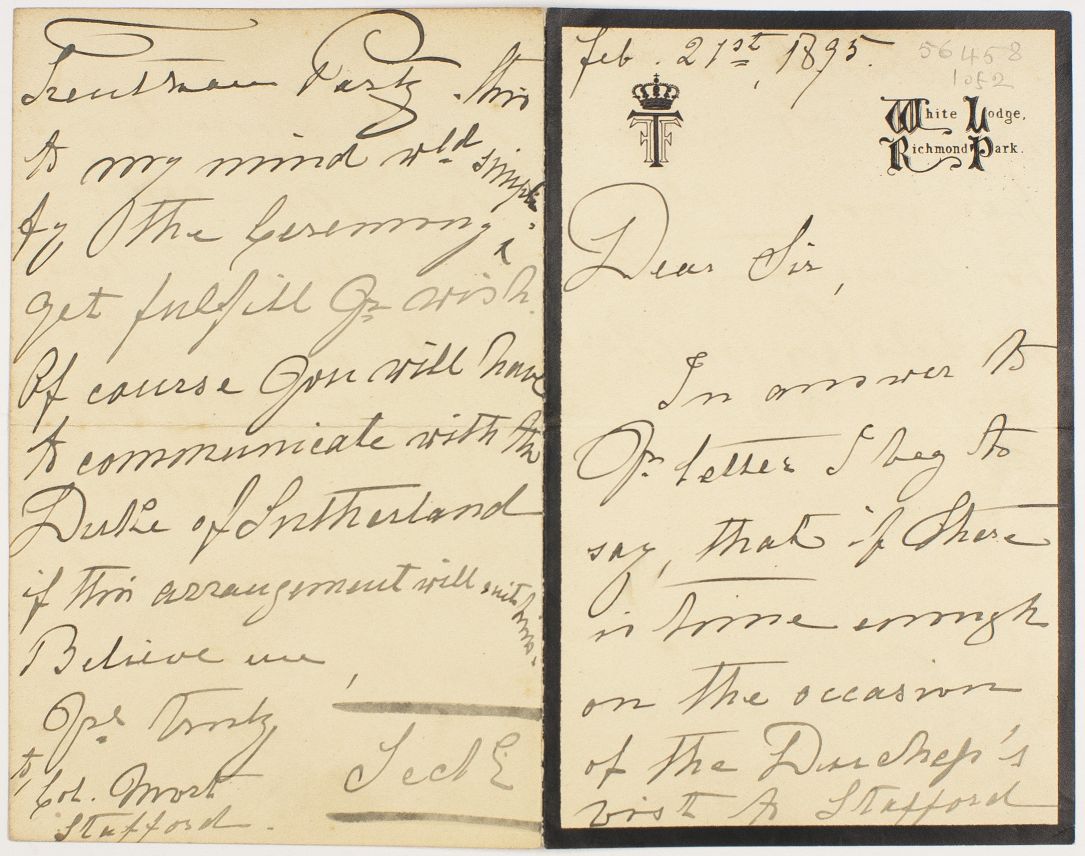 Feb. 21st, 1895.
56458
1 of 2
T
White Lodge,
Richmond Park.
Dear Sir,
In answer to
Yr letter I beg to
say, that if there
is time enough
on the occasion
of the Duchess's
visit to Stafford
Trentham Party. this
to my mind wld simpli-
fy the Ceremony &
yet fulfill Yr wish.
Of course You will have
to communicate with the
Duke of Sutherland
if this arrangement will suit him.
Believe me,
Yrs Truly
Teck
to,
Col. Mort
Stafford.